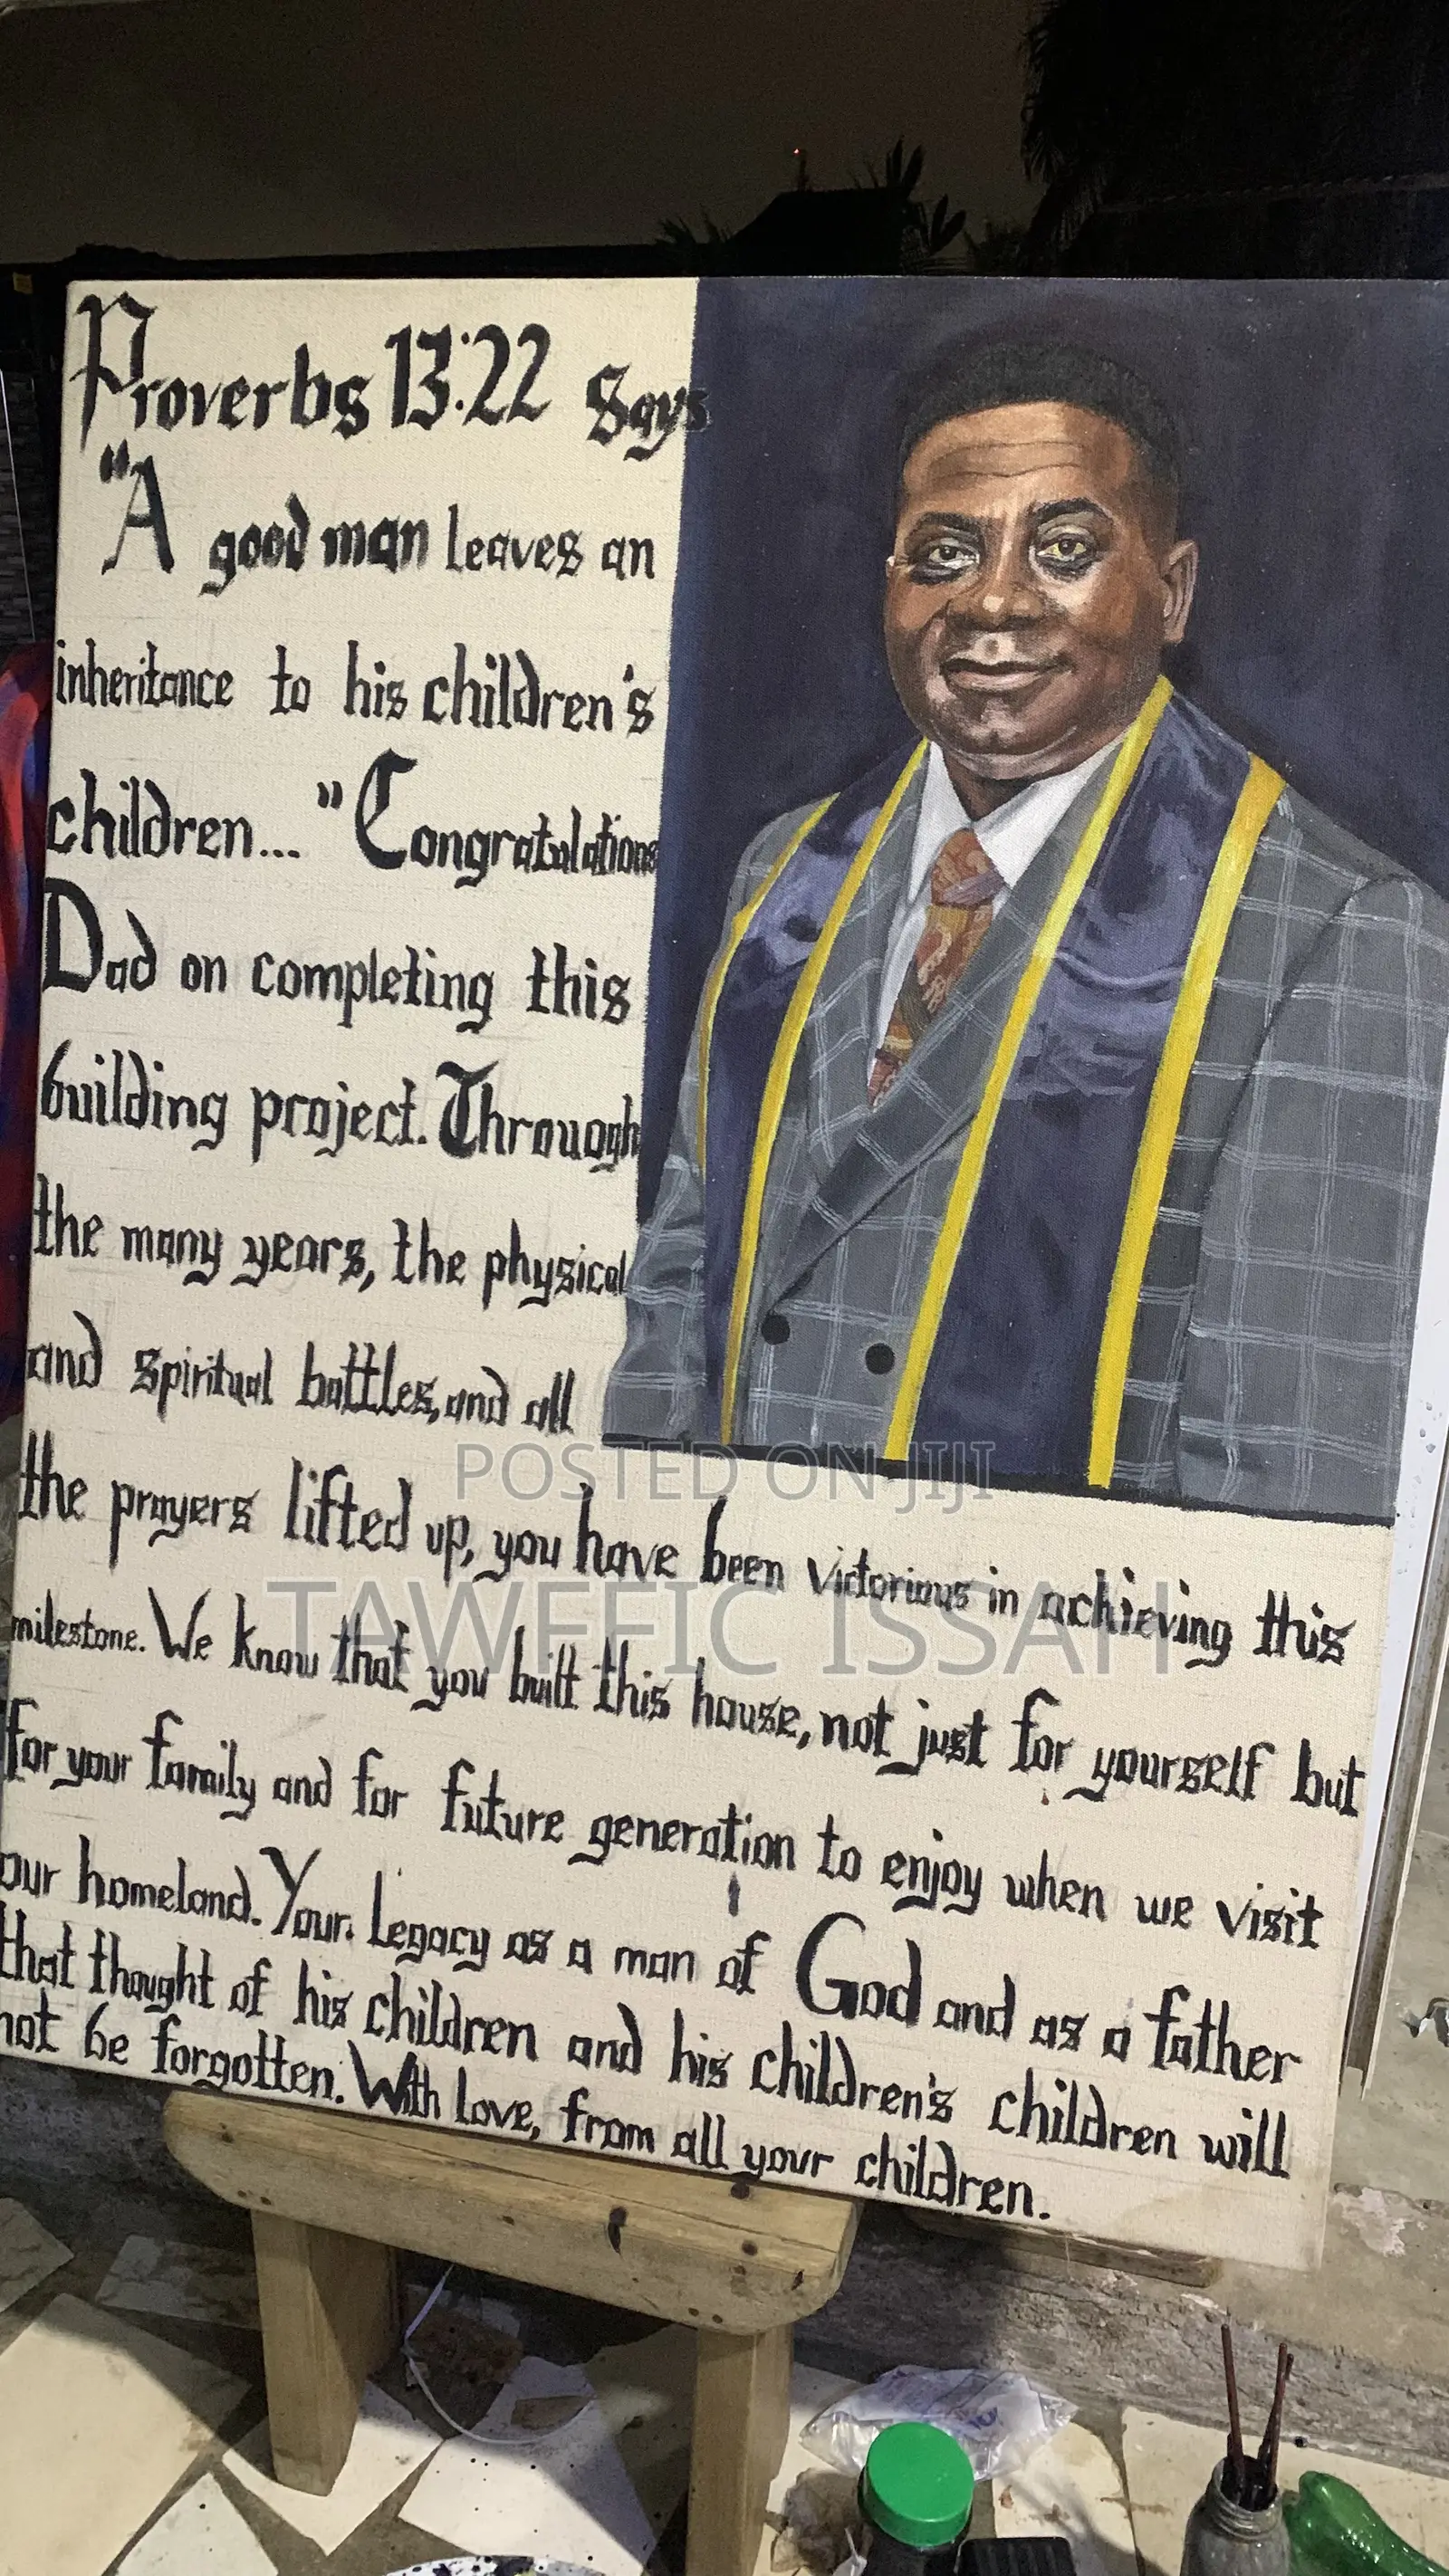 Proverbs 13:22 says
"A good man leaves an
inheritance to his children's
children... "Congratulations
Dad on completing this
building project. Through
the many years, the physical
and spiritual battles, and all
the prayers lifted up, you have been victorious in achieving this
milestone. We know that you built this house, not just for yourself but
for your family and for future generation to enjoy when we visit
our homeland. Your legacy as a man of God and as a father
that thought of his children and his children's children will
not be forgotten. With love, from all your children.
POSTED ON JIJI
TAWFFIC ISSAH